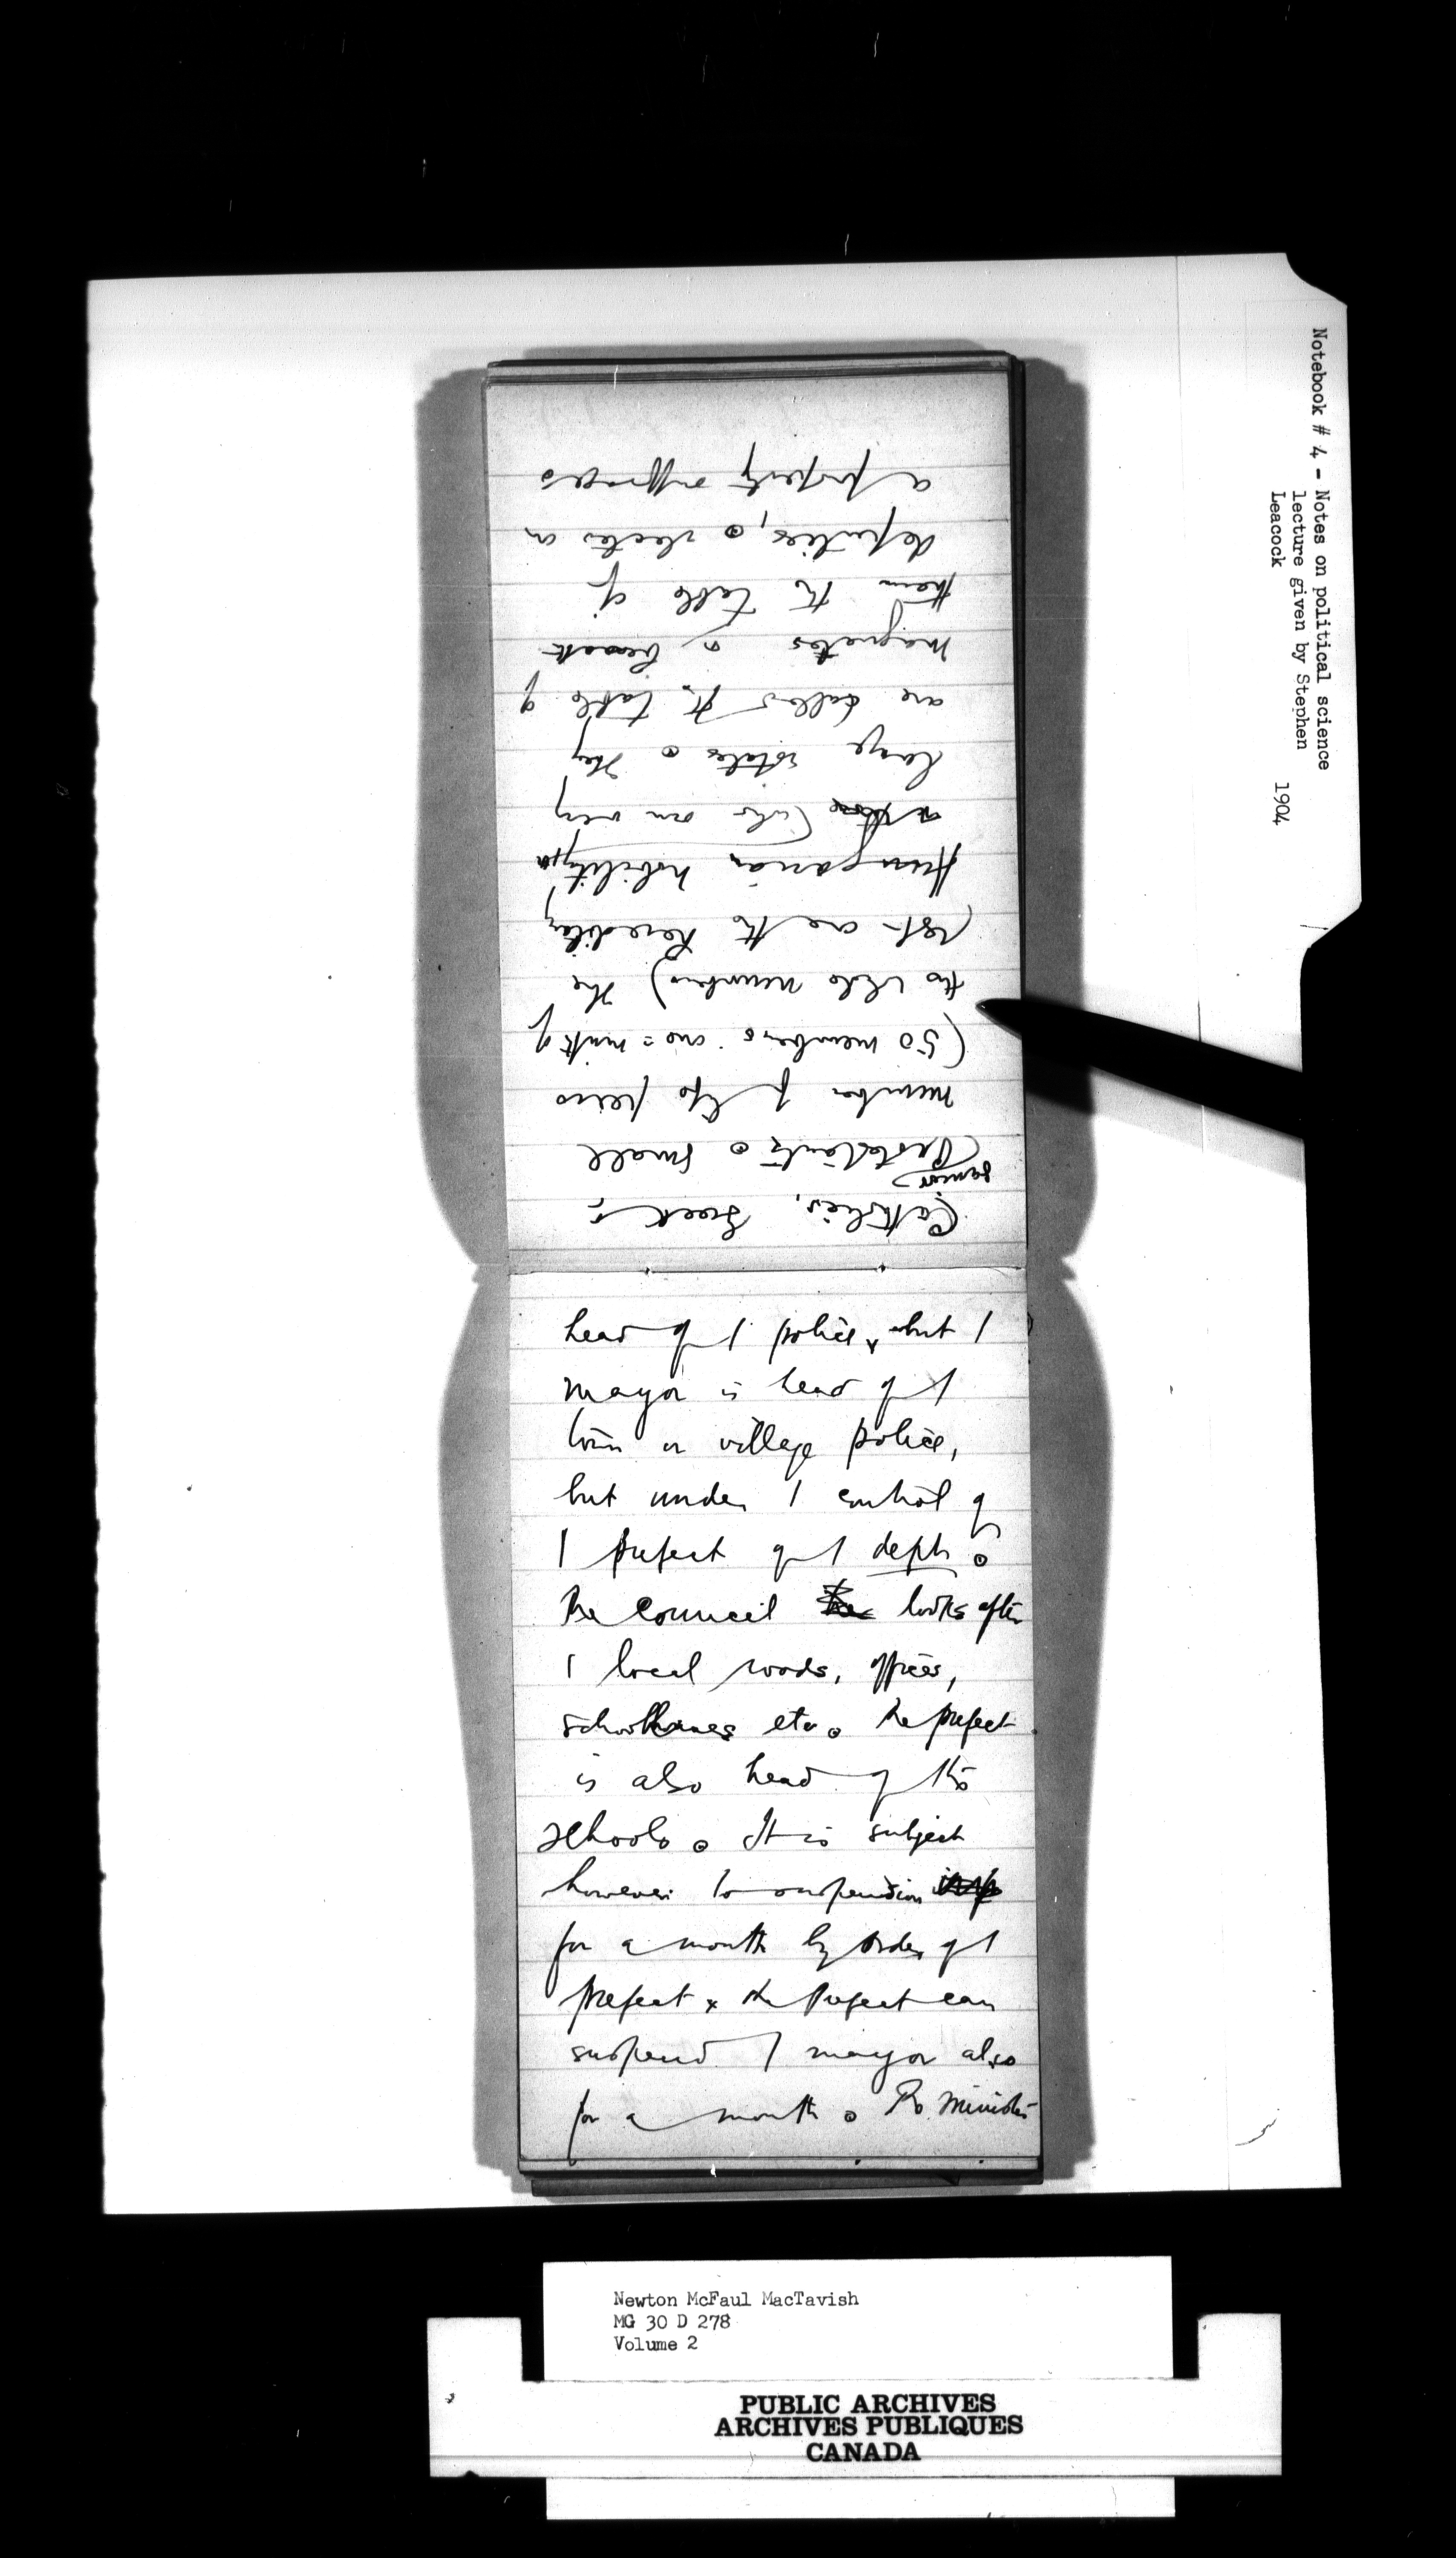 Notebook # 4 - Notes on political science
lecture given by Stephen
Leacock
1904
Catholics, Greek &
Protestants o small
number of life peers
(50 members
the whole number) The
rest are the hereditary
Hungarian nobility
(who own very
large estates o They
are called the table of
magnates o beneath
them the table of
deputies, o elected on
a property suffrages
head of / police but /
mayor is head of /
town or village police,
but under / control of
/ prefect of / dept. o
The council looks after
/ local roads, offices,
schoolhouses etc o The prefect
is also head of the
schools o It is subject
however to suspension
for a month by order of /
prefect & the Prefect can
suspend / mayor also
for a month o The minister
Newton McFaul MacTavish
MG 30 D 278
Volume 2
PUBLIC ARCHIVES
ARCHIVES PUBLIQUES
CANADA